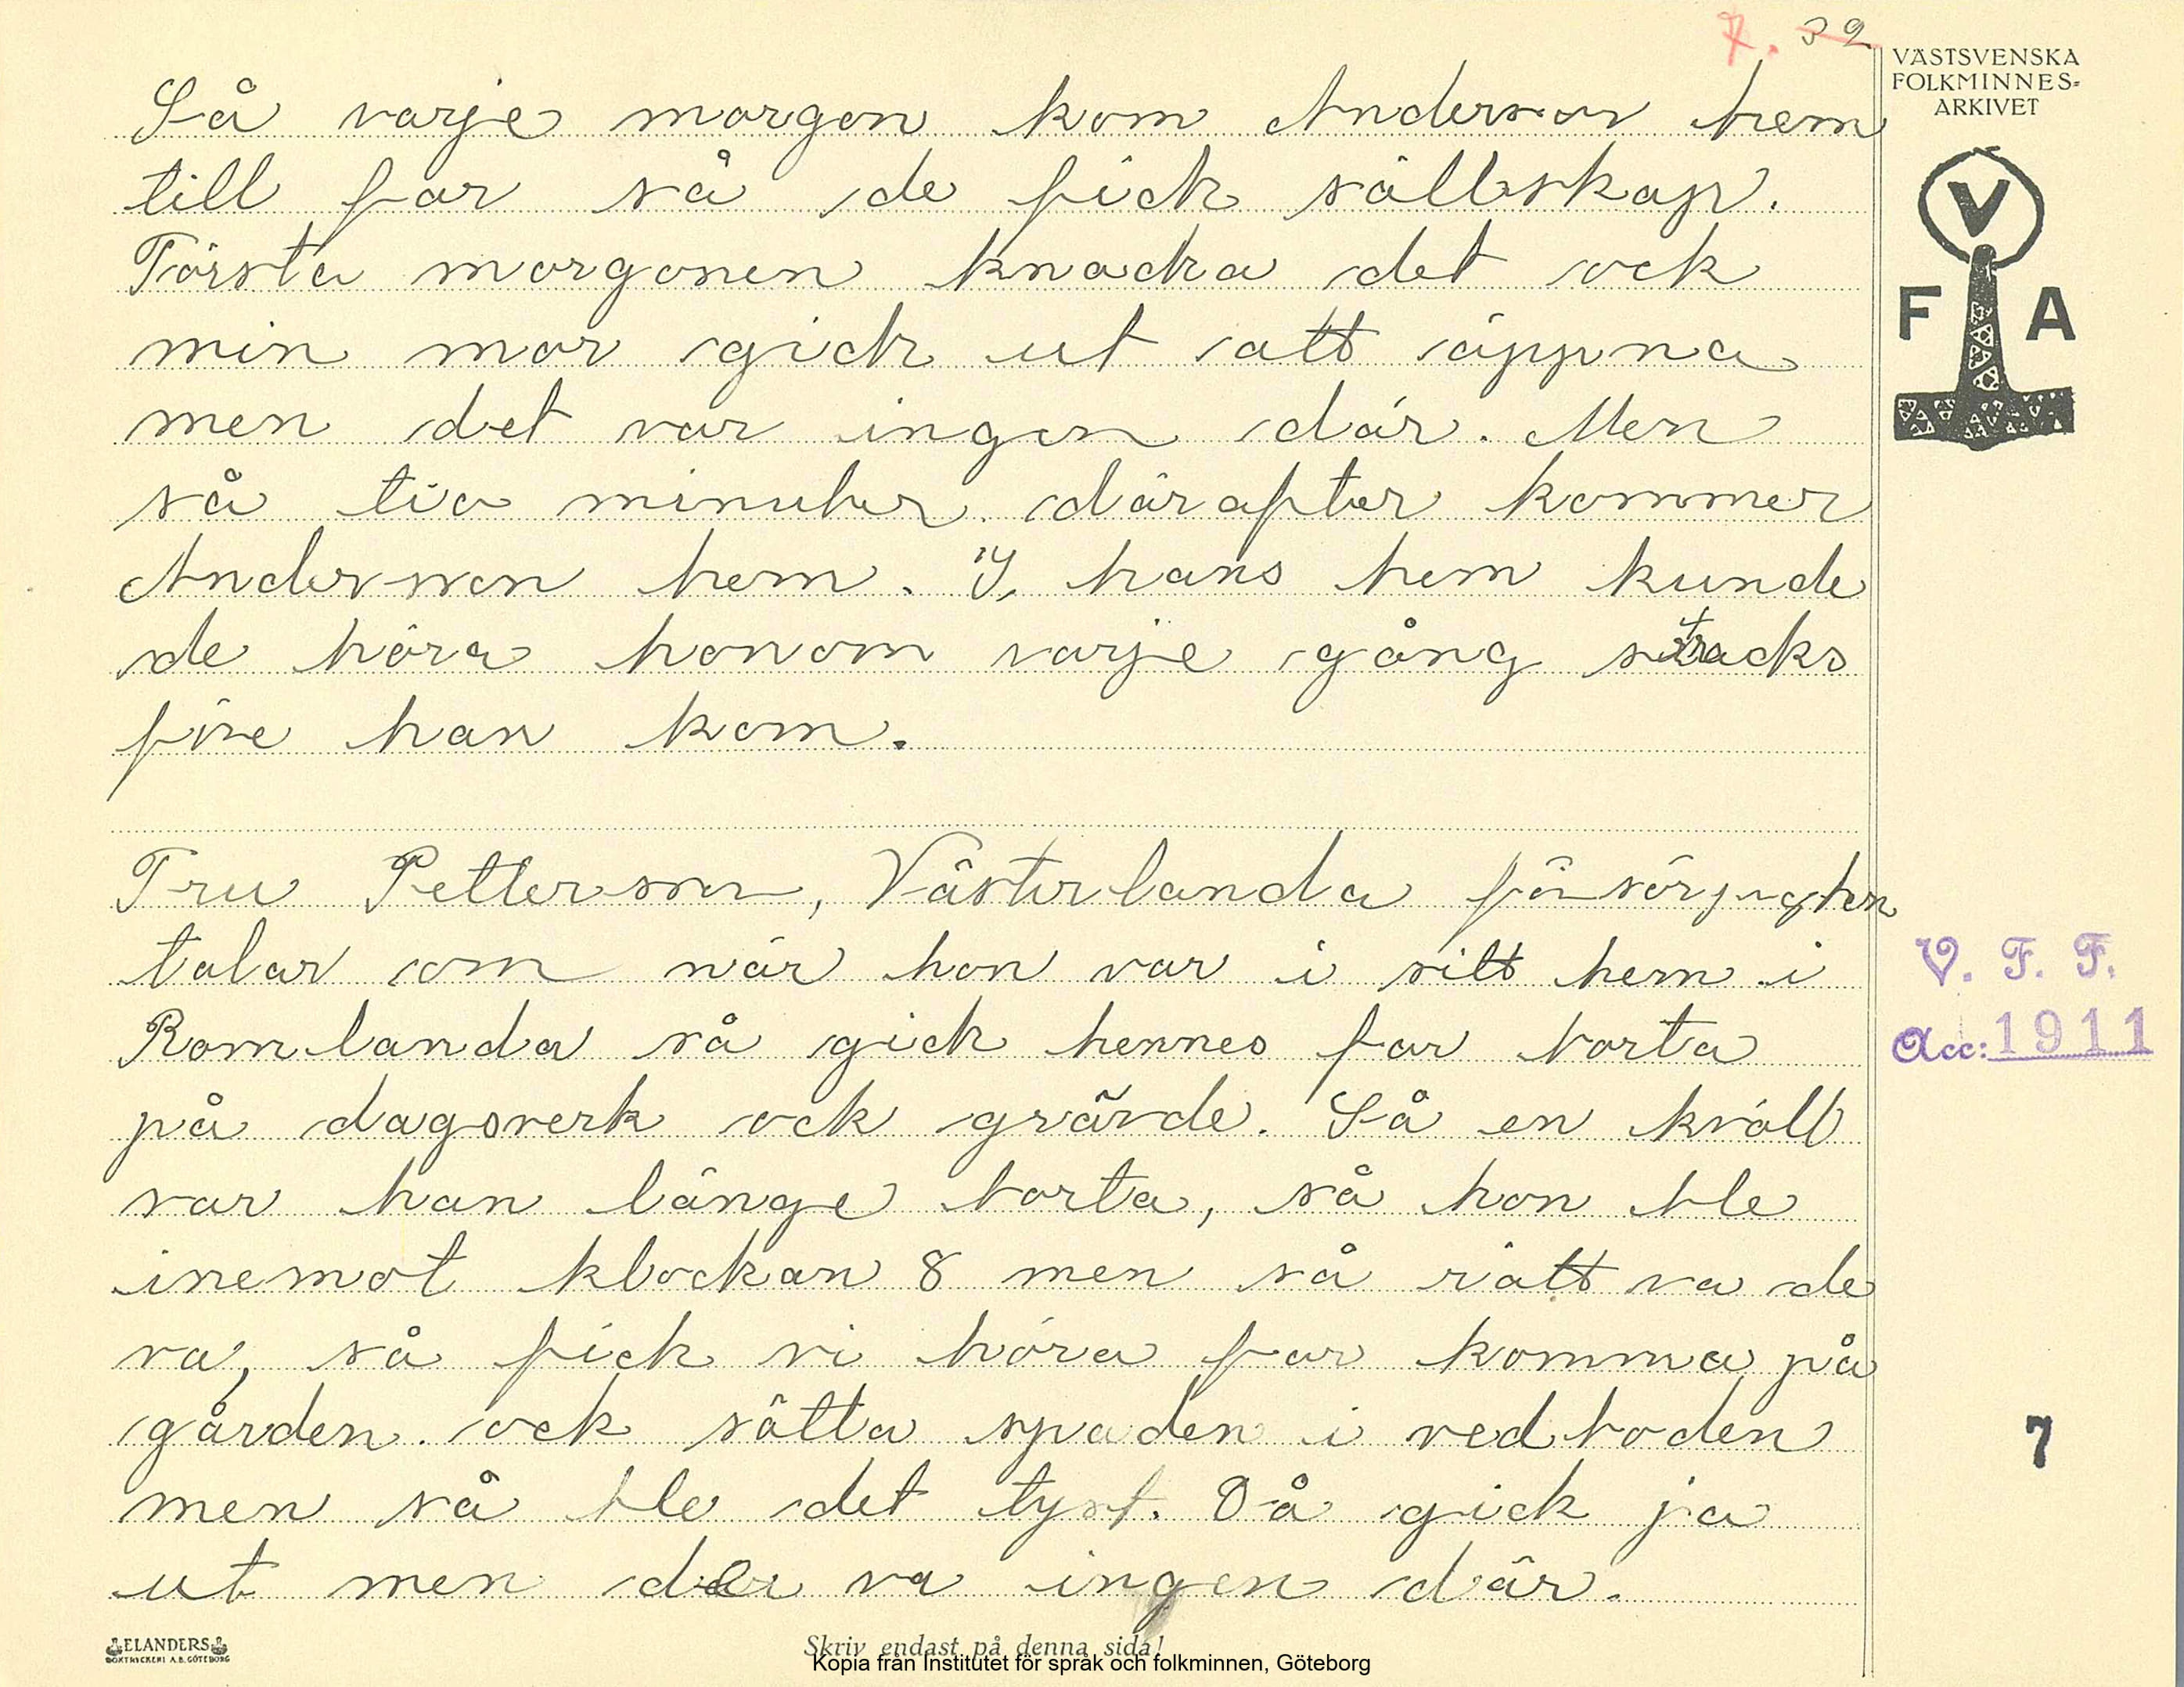 7. 32
VÄSTSVENSKA
FOLKMINNES-
ARKIVET
V
F A
Så varje morgon kom Anderson hem
till far så de fick sällskap.
Första morgonen knacka det ock
min mor gick ut att äppna
men det var ingen där. Men
så tio minuter därapter kommer
Andersson hem. I hans hem kunde
de höra honom varje gång stracks
före han kom.
Fru Petterson, Västerlanda
talar om när hon var i sitt hem i
Romlanda så gick hennes far borta
på dagsverk ock grävde. Så en kväll
var han länge borta, så hon ble
inemot klockan 8 men så rätt va de
va, så fick vi höra far komma på
gården ock sätta spaden i vedboden
men så ble det tyst. Då gick ja
ut men der va ingen där.
V. F. F.
Acc: 1911
7
ELANDERS
BOKTRYCKERI A.B. GÖTEBORG
Skriv endast på denna sida!
Kopia från Institutet för språk och folkminnen, Göteborg